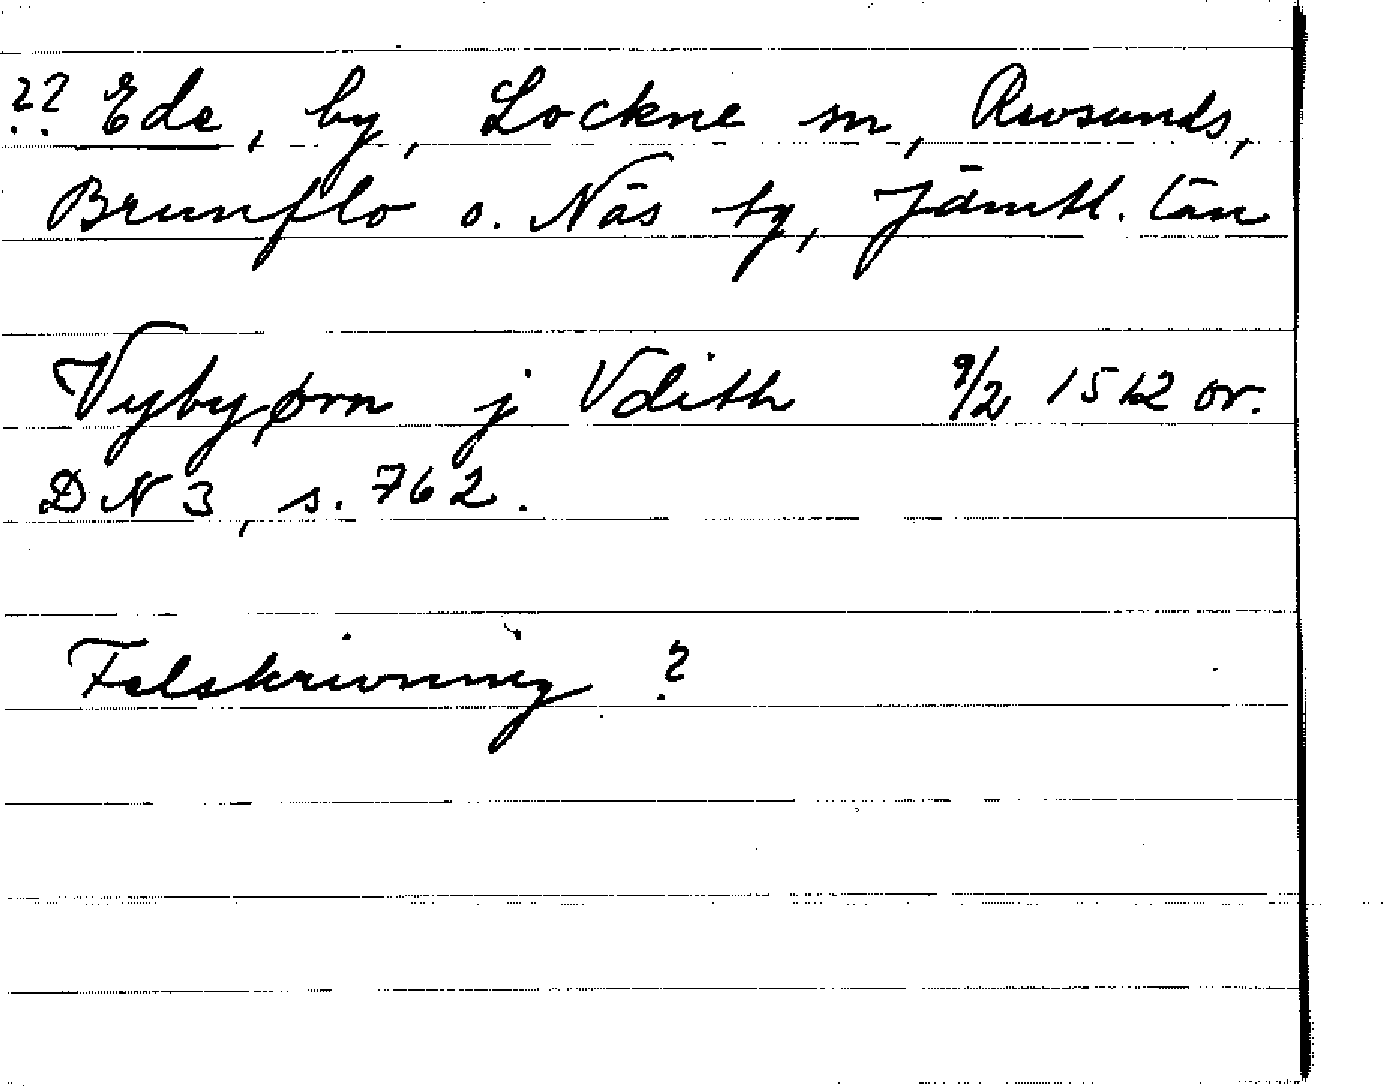 ?? Ede, by, Lockne sn, Revsunds,
Brunflo o. Näs tg, Jämtl. län
Vybyørn j Vdith 9/2 1512 or.
DN 3, s. 762.
Felskrivning ?